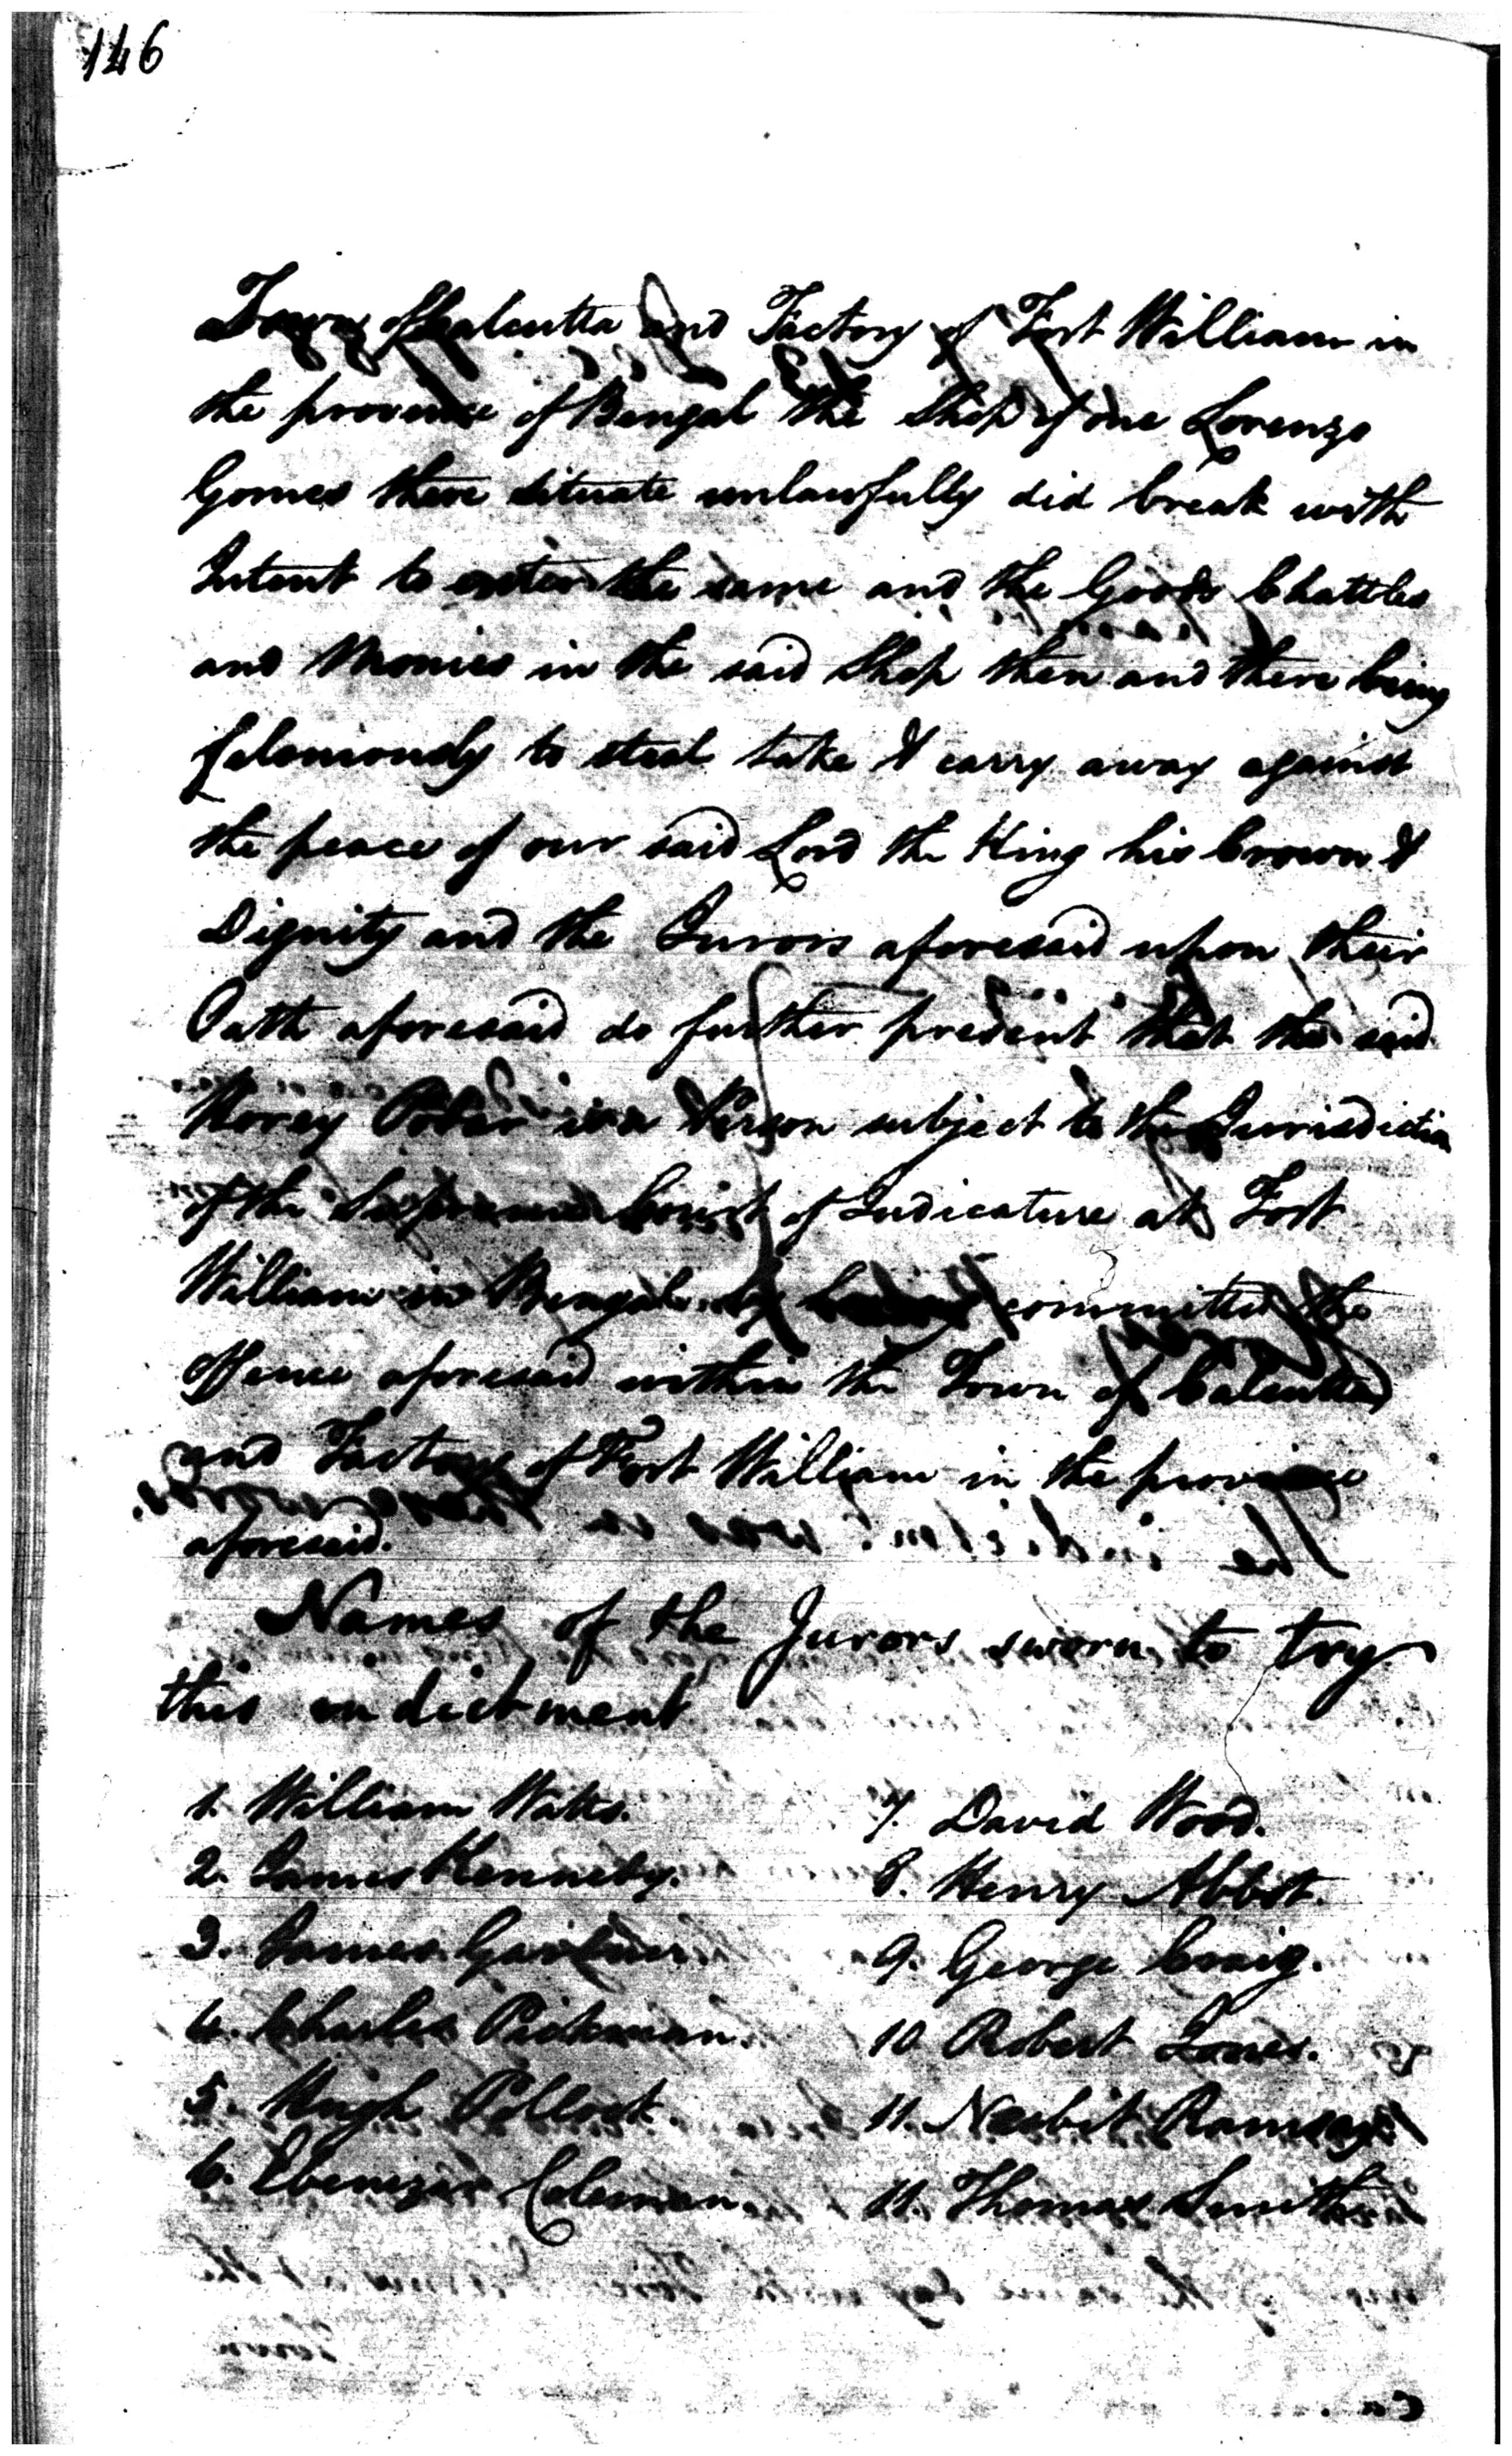 146
Town of Calcutta and Factory of Fort William in
the province of Bengal the Shop of one Lorenzo
Gomes there situate unlawfully did break with
Intent to enter the same and the Goods Chattles
and Monies in the said Shop then and there being
feloniously to steal take & carry away against
the peace of our said Lord the King his Crown &
Dignity and the Jurors aforesaid upon their
Oath aforesaid do further present that the said
Horey is a Person subject to the Jurisdiction
of the Supreme Court of Judicature at Fort
William in Bengal committed the
offence aforesaid within the Town of Calcutta
and Factory of Fort William in the province
aforesaid.
Names of the Jurors sworn to try
this indictment
1. William Watts.
2. James Kennedy.
3. James Gardiner.
4. Charles Pickman.
5. Hugh Pollock.
6. Ebenezar Coleman.
7. David Wood.
8. Henry Abbot.
9. George Craig.
10 Robert Jones.
11. Nesbit Ramsay.
11. Thomas Smith